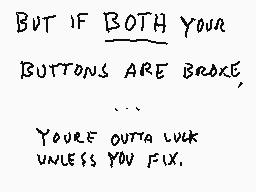 BUT IF BOTH YOUR
BUTTONS ARE BROKE,
...
YOURE OUTTA LUCK
UNLESS YOU FIX.